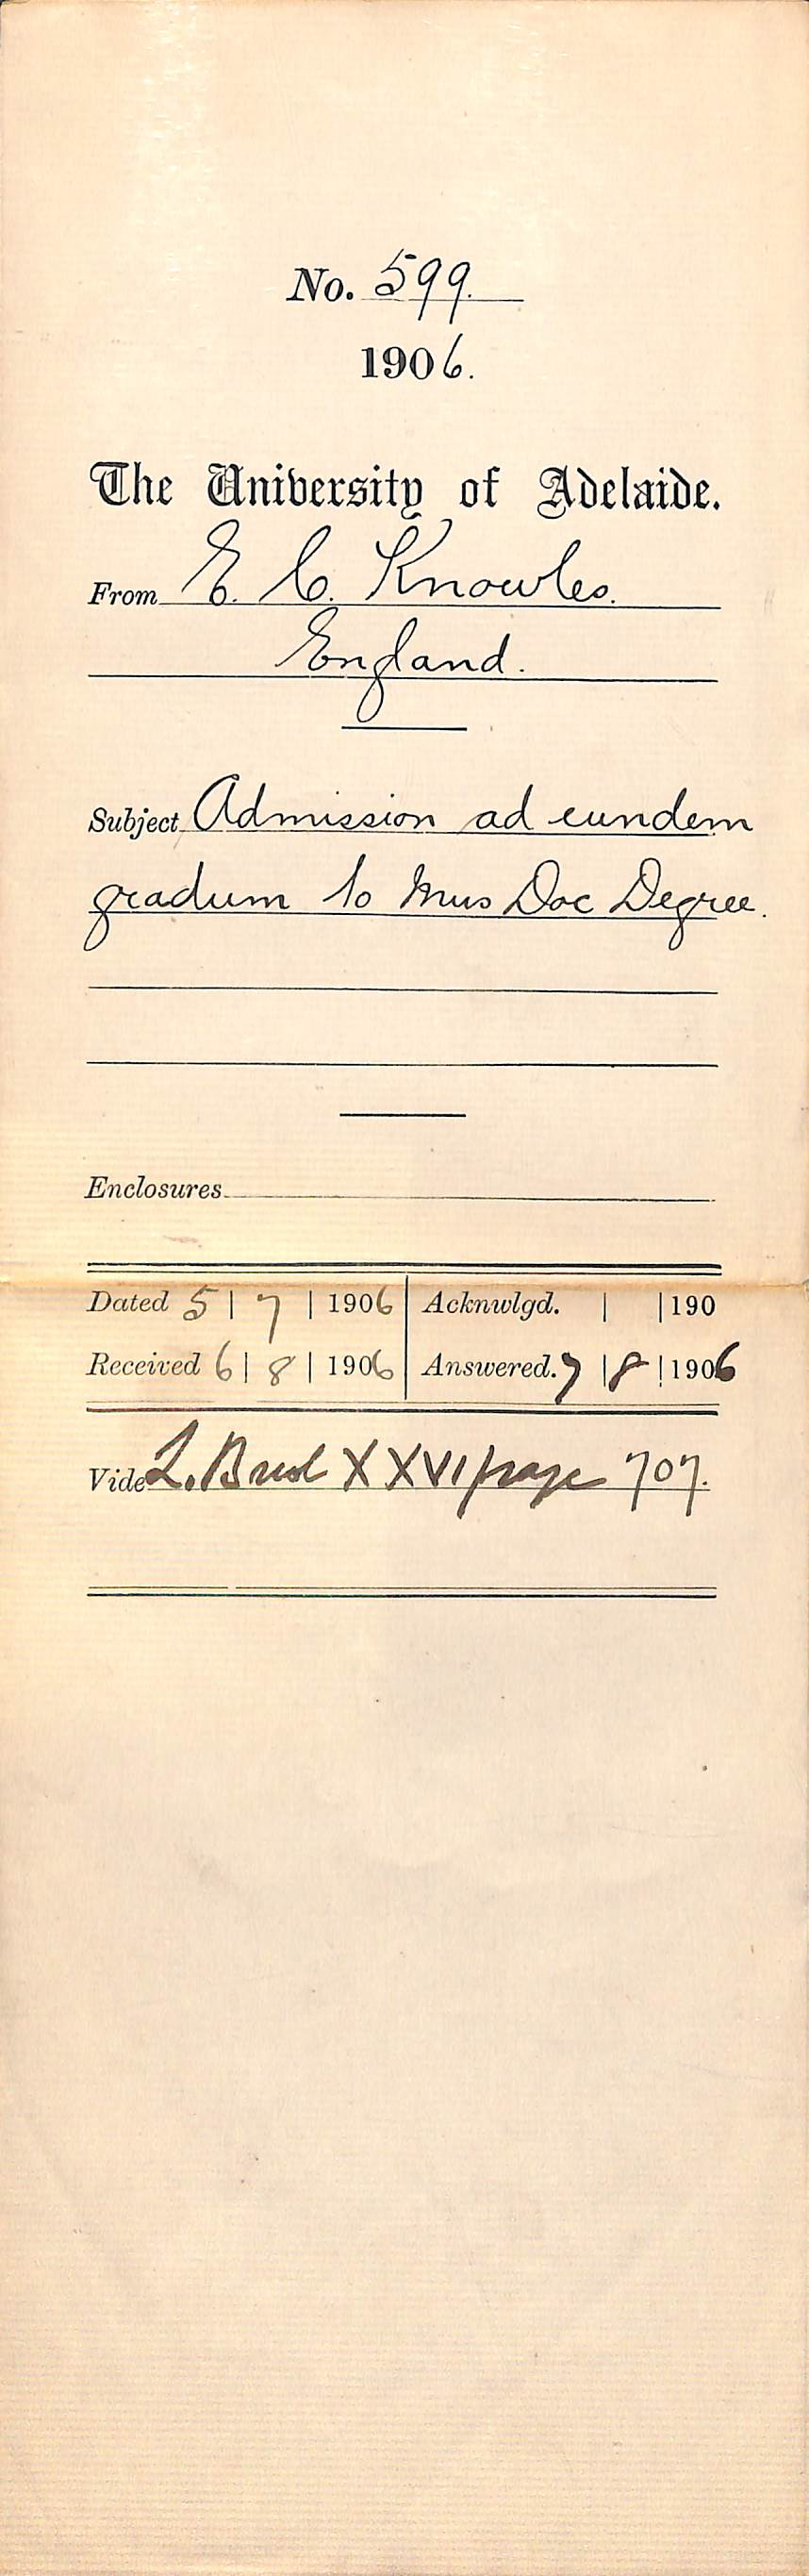 No. 599.
1906.
The University of Adelaide.
From E. C. Knowles.
England.
Subject Admission ad eundem
gradum to Mus Doc Degree.
Enclosures
Dated 5 | 7 | 1906 Acknwlgd. | | 190
Received 6 | 8 | 1906 Answered. 7 | 8 | 1906
Vide L. XXVI page 707.